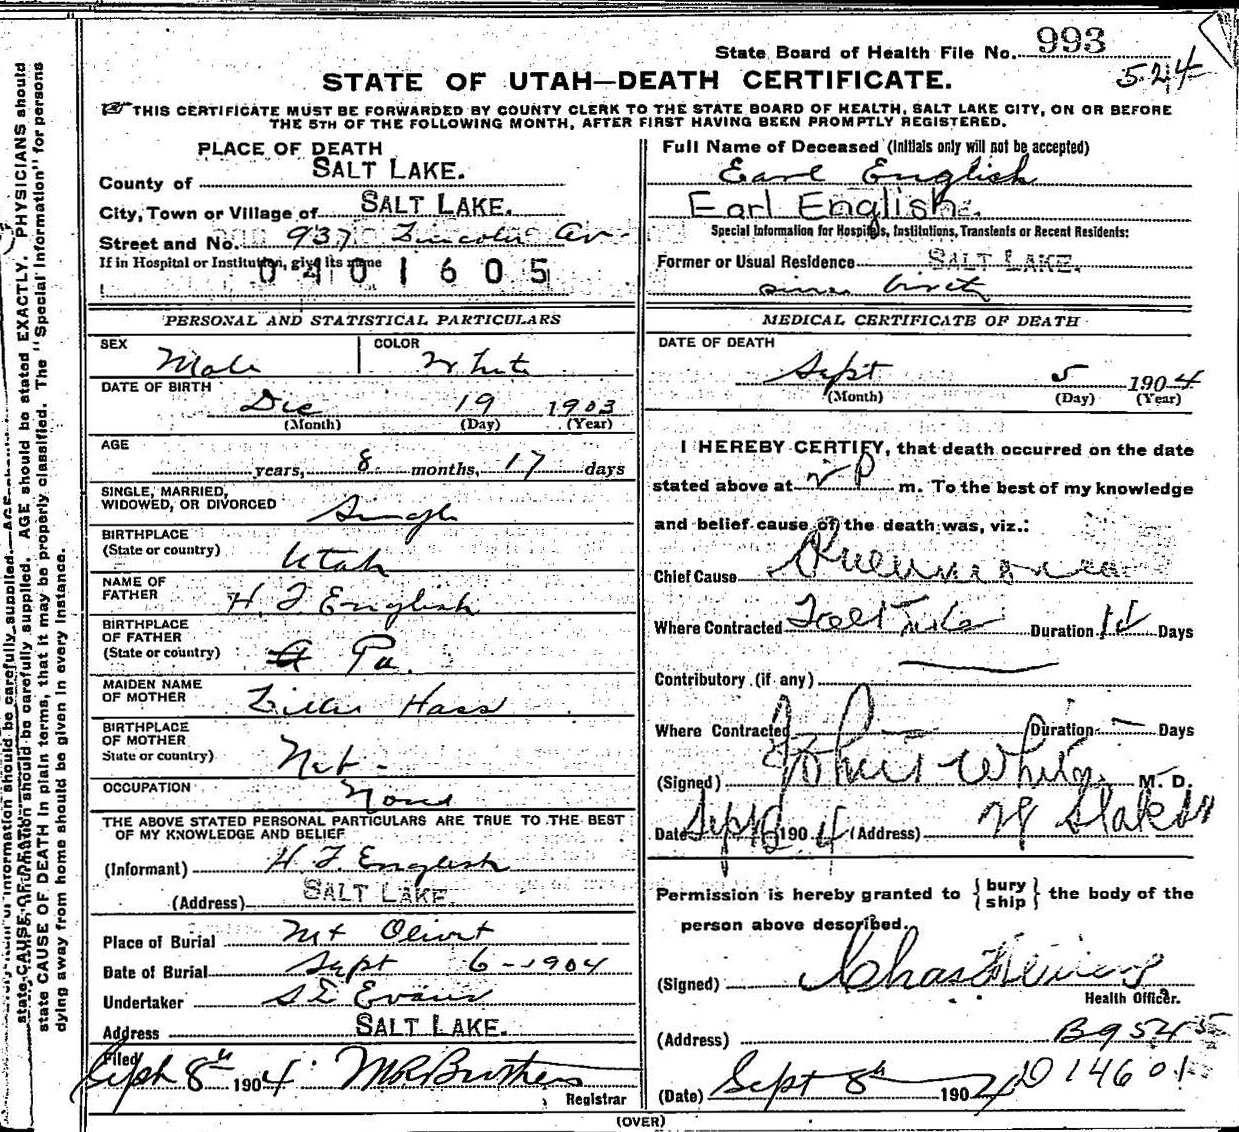 State Board of Health File No. 993
524
STATE OF UTAH—DEATH CERTIFICATE.
THIS CERTIFICATE MUST BE FORWARDED BY COUNTY CLERK TO THE STATE BOARD OF HEALTH, SALT LAKE CITY, ON OR BEFORE
THE 5TH OF THE FOLLOWING MONTH, AFTER FIRST HAVING BEEN PROMPTLY REGISTERED.
PLACE OF DEATH
County of SALT LAKE.
City, Town or Village of SALT LAKE.
Street and No. 937 Lincoln Av
If in Hospital or Institution, give its name
0401605
Full Name of Deceased (Initials only will not be accepted)
Earl English
Earl English.
Special Information for Hospitals, Institutions, Transients or Recent Residents:
Former or Usual Residence SALT LAKE.
since birth
PERSONAL AND STATISTICAL PARTICULARS
SEX Male COLOR White
DATE OF BIRTH
Dec 19 1903
(Month) (Day) (Year)
AGE
years, 8 months, 17 days
SINGLE, MARRIED,
WIDOWED, OR DIVORCED Single
BIRTHPLACE
(State or country) Utah
NAME OF
FATHER H. F. English
BIRTHPLACE
OF FATHER
(State or country) Pa.
MAIDEN NAME
OF MOTHER Hass
BIRTHPLACE
OF MOTHER
State or country)
OCCUPATION None
THE ABOVE STATED PERSONAL PARTICULARS ARE TRUE TO THE BEST
OF MY KNOWLEDGE AND BELIEF
(Informant) H. F. English
(Address) SALT LAKE.
Place of Burial Mt Olivet
Date of Burial Sept 6 - 1904
Undertaker S E Evans
Address SALT LAKE.
Filed
Sept 8th 1904. M R Brothers
Registrar
MEDICAL CERTIFICATE OF DEATH
DATE OF DEATH
Sept 5 1904
(Month) (Day) (Year)
I HEREBY CERTIFY, that death occurred on the date
stated above at P m. To the best of my knowledge
and belief cause of the death was, viz.:
Chief Cause Pneumonia
Where Contracted Duration Days
Contributory (if any)
Where Contracted Duration Days
(Signed) White M. D.
Date Sept 6 1904 (Address)
Permission is hereby granted to { bury
ship } the body of the
person above described.
(Signed) Chas
Health Officer.
(Address) B 9545
(Date) Sept 8th 1904 D 14601
(OVER)
PHYSICIANS should
state CAUSE OF DEATH in plain terms, that it may be properly classified. The "Special Information" for persons
dying away from home should be given in every instance.
AGE should be stated EXACTLY.